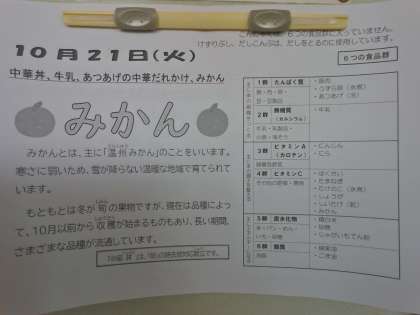 こんだては、6つの食品群に入っていません。
けずりぶし、だしこんぶは、だしをとるのに使用しています。
10月21日(火)
中華丼、牛乳、あつあげの中華だれかけ、みかん
みかん
みかんとは、主に「温州みかん」のことをいいます。
寒さに弱いため、雪が降らない温暖な地域で育てられて
います。
もともとは冬が旬の果物ですが、現在は品種によっ
て、10月以前から収穫が始まるものもあり、長い期間、
さまざまな品種が流通しています。
6つの食品群
1群 たんぱく質
・豚肉
・うずら卵(水煮)
・あつあげ
2群 無機質
(カルシウム)
・牛乳
3群 ビタミンA
(カロテン)
・にんじん
・にら
緑黄色野菜
4群 ビタミンC
その他の野菜・果物
・はくさい
・たまねぎ
・たけのこ(水煮)
・しょうが
・しいたけ(乾)
・みかん
5群 炭水化物
米・パン・めん・
いも・砂糖
・精白米
・砂糖
・じゃがいもでん粉
6群 脂質
油脂
・ごま油